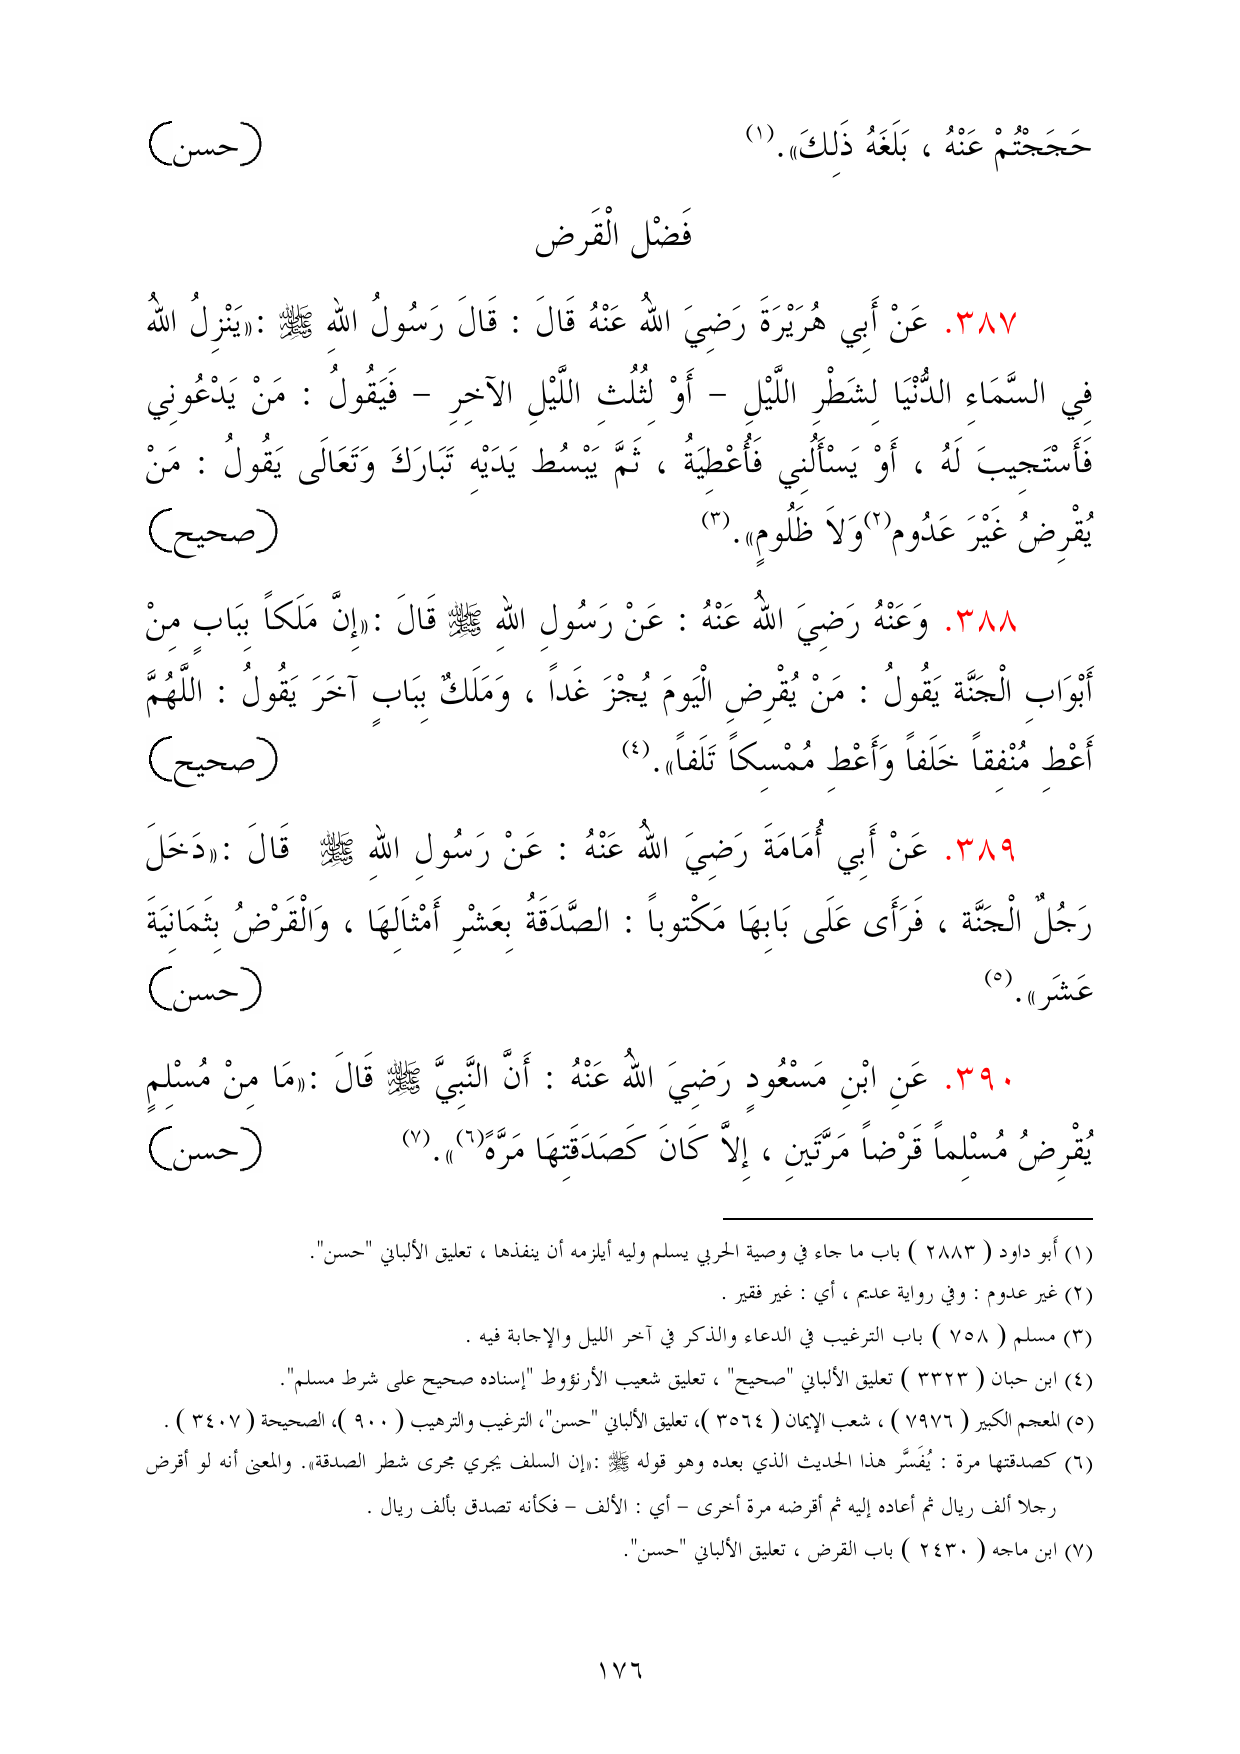 حَجَجْتُمْ عَنْهُ ، بَلَغَهُ ذَلِكَ».(١) (حسن)
فَضْل الْقَرض
٣٨٧. عَنْ أَبِي هُرَيْرَةَ رَضِيَ اللهُ عَنْهُ قَالَ : قَالَ رَسُولُ اللهِ ﷺ :«يَنْزِلُ اللهُ
فِي السَّمَاءِ الدُّنْيَا لِشَطْرِ اللَّيْلِ – أَوْ لِثُلُثِ اللَّيْلِ الآخِرِ – فَيَقُولُ : مَنْ يَدْعُونِي
فَأَسْتَجِيبَ لَهُ ، أَوْ يَسْأَلُنِي فَأُعْطِيَهُ ، ثَمَّ يَبْسُط يَدَيْهِ تَبَارَكَ وَتَعَالَى يَقُولُ : مَنْ
يُقْرِضُ غَيْرَ عَدُوم(٢)وَلاَ ظَلُومٍ».(٣) (صحيح)
٣٨٨. وَعَنْهُ رَضِيَ اللهُ عَنْهُ : عَنْ رَسُولِ اللهِ ﷺ قَالَ :«إِنَّ مَلَكاً بِبَابٍ مِنْ
أَبْوَابِ الْجَنَّة يَقُولُ : مَنْ يُقْرِضِ الْيَومَ يُجْزَ غَداً ، وَمَلَكٌ بِبَابٍ آخَرَ يَقُولُ : اللَّهُمَّ
أَعْطِ مُنْفِقاً خَلَفاً وَأَعْطِ مُمْسِكاً تَلَفاً».(٤) (صحيح)
٣٨٩. عَنْ أَبِي أُمَامَةَ رَضِيَ اللهُ عَنْهُ : عَنْ رَسُولِ اللهِ ﷺ قَالَ :«دَخَلَ
رَجُلٌ الْجَنَّة ، فَرَأَى عَلَى بَابِهَا مَكْتوباً : الصَّدَقَةُ بِعَشْرِ أَمْثَالِهَا ، وَالْقَرْضُ بِثَمَانِيَةَ
عَشَر».(٥) (حسن)
٣٩٠. عَنِ ابْنِ مَسْعُودٍ رَضِيَ اللهُ عَنْهُ : أَنَّ النَّبِيَّ ﷺ قَالَ :«مَا مِنْ مُسْلِمٍ
يُقْرِضُ مُسْلِماً قَرْضاً مَرَّتَينِ ، إِلاَّ كَانَ كَصَدَقَتِهَا مَرَّةً(٦)».(٧) (حسن)
(١) أبو داود ( ٢٨٨٣ ) باب ما جاء في وصية الحربي يسلم وليه أيلزمه أن ينفذها ، تعليق الألباني "حسن".
(٢) غير عدوم : وفي رواية عديم ، أي : غير فقير .
(٣) مسلم ( ٧٥٨ ) باب الترغيب في الدعاء والذكر في آخر الليل والإجابة فيه .
(٤) ابن حبان ( ٣٣٢٣ ) تعليق الألباني "صحيح" ، تعليق شعيب الأرنؤوط "إسناده صحيح على شرط مسلم".
(٥) المعجم الكبير ( ٧٩٧٦ ) ، شعب الإيمان ( ٣٥٦٤ )، تعليق الألباني "حسن"، الترغيب والترهيب ( ٩٠٠ )، الصحيحة ( ٣٤٠٧ ) .
(٦) كصدقتها مرة : يُفَسَّر هذا الحديث الذي بعده وهو قوله ﷺ :«إن السلف يجري مجرى شطر الصدقة». والمعنى أنه لو أقرض
رجلا ألف ريال ثم أعاده إليه ثم أقرضه مرة أخرى – أي : الألف – فكأنه تصدق بألف ريال .
(٧) ابن ماجه ( ٢٤٣٠ ) باب القرض ، تعليق الألباني "حسن".
١٧٦